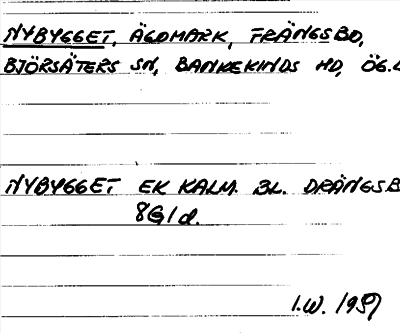 NYBYGGET, ÄGOMARK, FRÄNGSBO,
BJÖRSÄTERS SN, BANKEKINDS HD, ÖG.L
NYBYGGET EK KALM. BL. DRÄNGSB
8G1d.
I.W. 1957